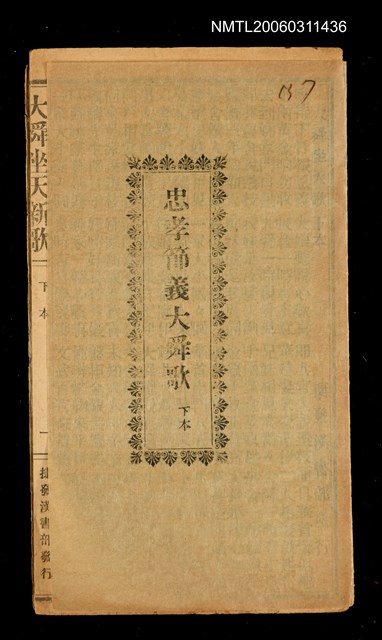 NMTL20060311436
忠孝節義大舜歌 下本
大舜坐天新歌 下本 一 捷發漢書部發行